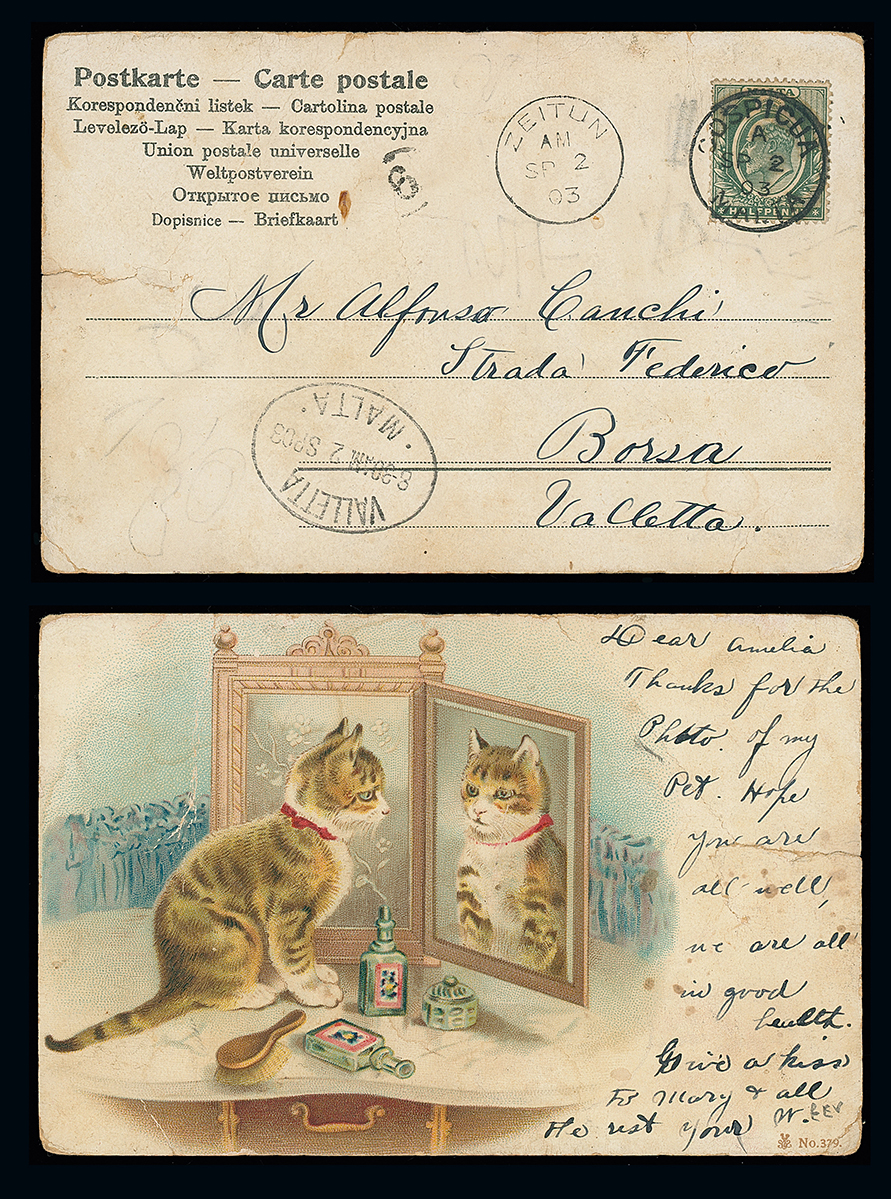 Postkarte — Carte postale
Korespondenční listek — Cartolina postale
Levelező-Lap — Karta korespondencyjna
Union postale universelle
Weltpostverein
Открытое письмо
Dopisnice — Briefkaart
ZEITUN
AM
SP 2
03
MALTA
HALFPENNY
COSPICUA
A
SP 2
03
MALTA
Mr Alfonso Canchi
Strada Federico
Borsa
Valletta.
VALLETTA
8.30 AM 2 SP 03
· MALTA ·
Dear Amelia
Thanks for the
Photo of my
Pet. Hope
you are
all well,
we are all
in good
health.
Give a kiss
to Mary & all
the rest your W.
No. 379.